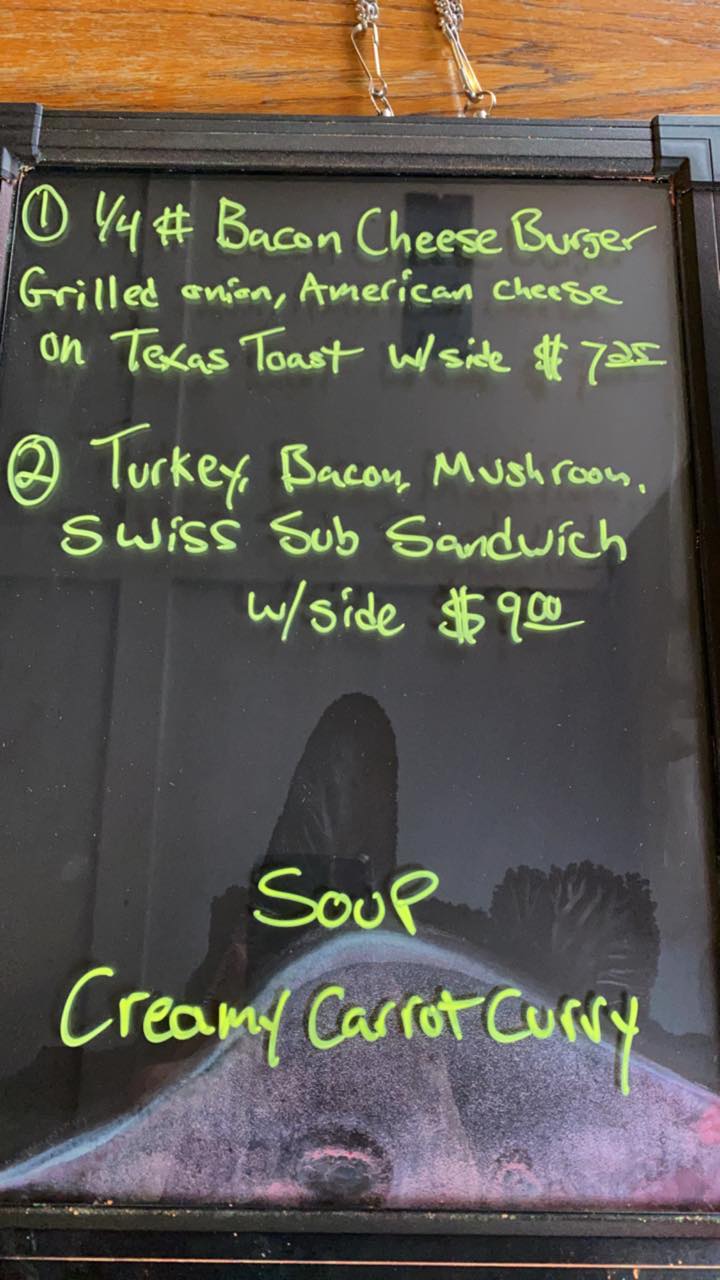 ① 1/4 # Bacon Cheese Burger
Grilled onion, American cheese
on Texas Toast w/side $7.25
② Turkey, Bacon, Mushroom,
Swiss Sub Sandwich
w/side $9.00
Soup
Creamy Carrot Curry